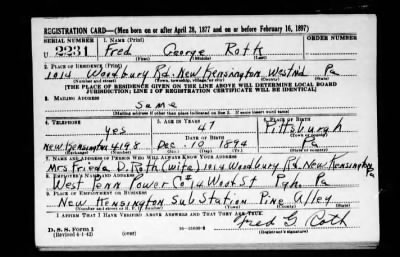 REGISTRATION CARD—(Men born on or after April 28, 1877 and on or before February 16, 1897)
SERIAL NUMBER 1. NAME (Print) ORDER NUMBER
U 2231 Fred George Roth
(First) (Middle) (Last)
2. PLACE OF RESIDENCE (Print)
1014 Woodbury Rd. New Kensington Westm'd Pa
(Number and street) (Town, township, village, or city) (County) (State)
[THE PLACE OF RESIDENCE GIVEN ON THE LINE ABOVE WILL DETERMINE LOCAL BOARD
JURISDICTION; LINE 2 OF REGISTRATION CERTIFICATE WILL BE IDENTICAL]
3. MAILING ADDRESS
Same
[Mailing address if other than place indicated on line 2. If same insert word same]
4. TELEPHONE 5. AGE IN YEARS 6. PLACE OF BIRTH
yes 47 Pittsburgh
DATE OF BIRTH (Town or county)
New Kensington 4198 Dec. 10, 1894 Pa
(Exchange) (Number) (Mo.) (Day) (Yr.) (State or country)
7. NAME AND ADDRESS OF PERSON WHO WILL ALWAYS KNOW YOUR ADDRESS
Mrs Frieda D. Roth (wife) 1014 Woodbury Rd. New Kensington Pa
8. EMPLOYER'S NAME AND ADDRESS
West Penn Power Co # 14 Wood St Pgh. Pa
9. PLACE OF EMPLOYMENT OR BUSINESS
New Kensington Sub Station Pine Alley
(Number and street or R. F. D. number) (Town) (County) (State)
I AFFIRM THAT I HAVE VERIFIED ABOVE ANSWERS AND THAT THEY ARE TRUE.
D. S. S. Form 1 Fred G. Roth
(Revised 4-1-42) (over) (Registrant's signature)